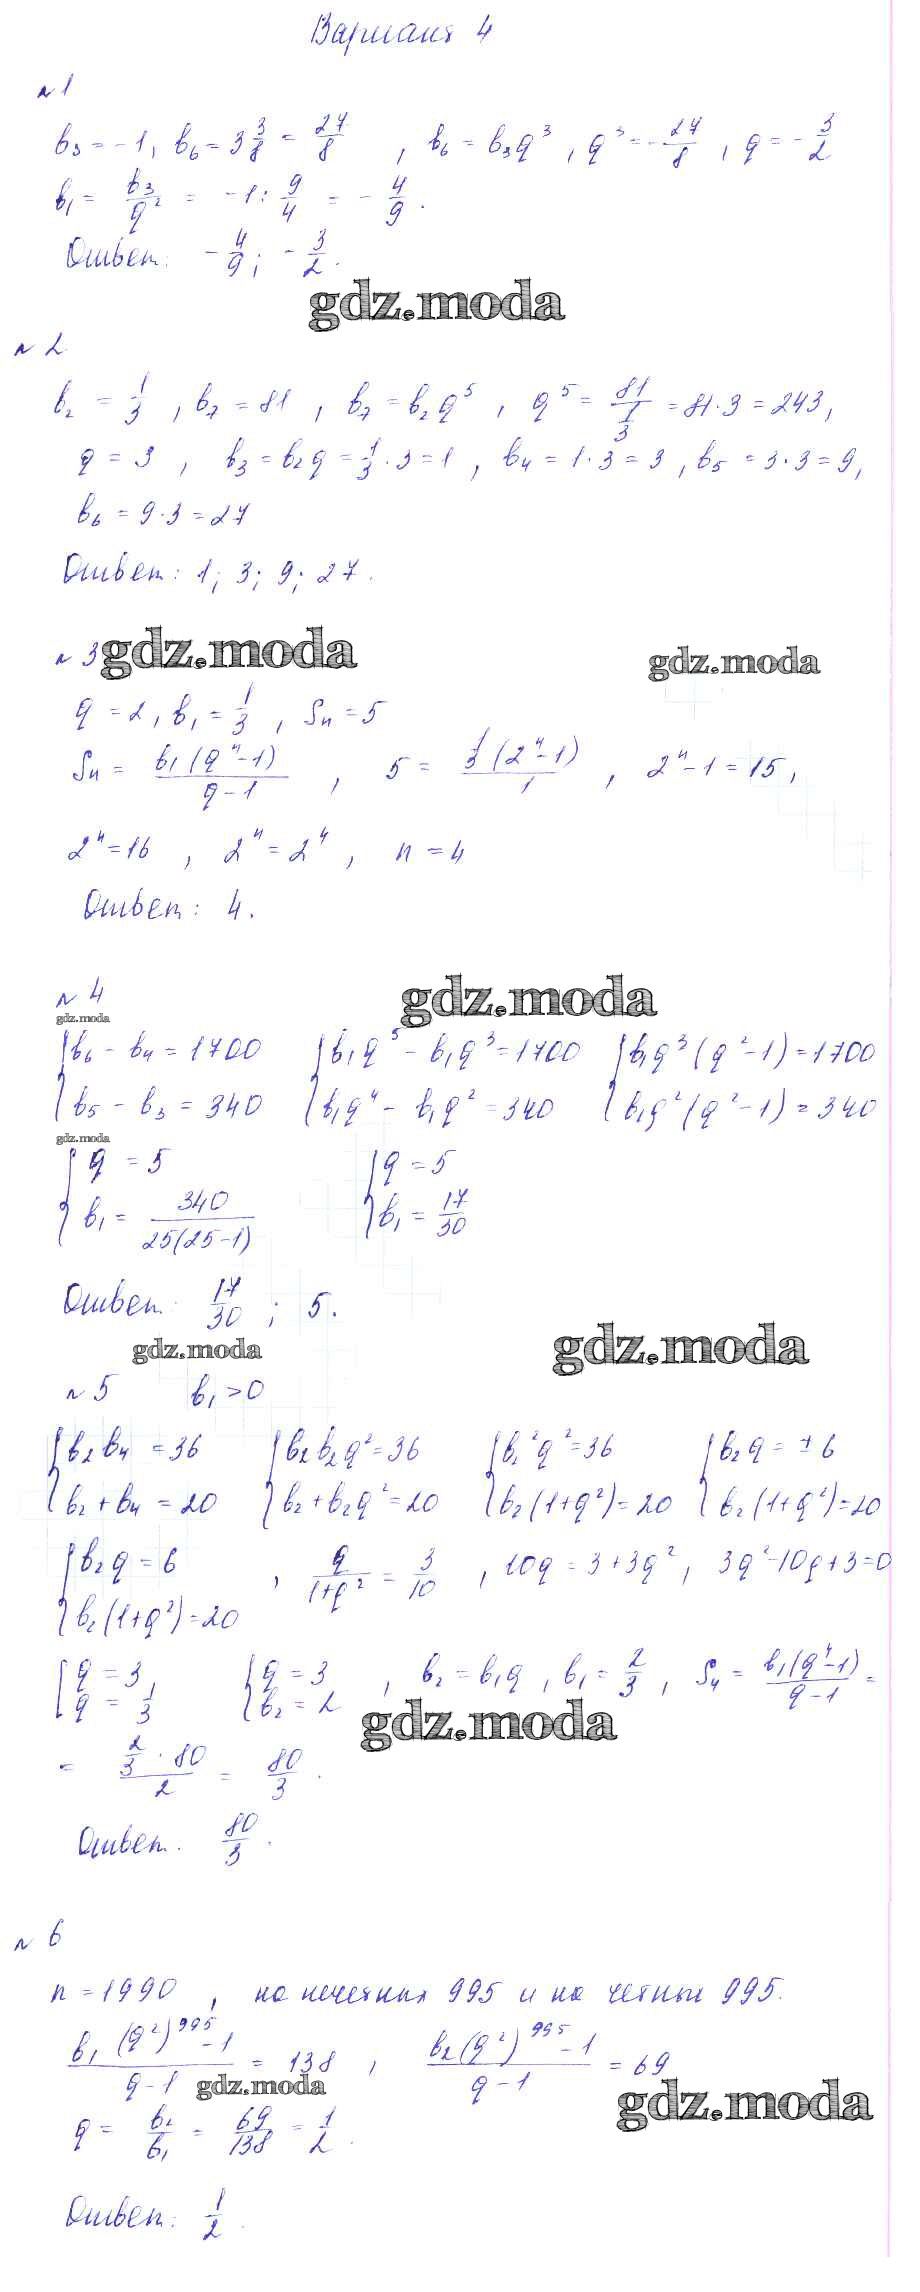 Вариант 4
№1
b₃ = -1, b₆ = 3 3/8 = 27/8, b₆ = b₃q³, q³ = -27/8, q = -3/2
b₁ = b₃/q² = -1 : 9/4 = -4/9.
Ответ: -4/9; -3/2.
gdz.moda
№2
b₂ = 1/3, b₇ = 81, b₇ = b₂q⁵, q⁵ = 81/(1/3) = 81·3 = 243,
q = 3, b₃ = b₂q = 1/3·3 = 1, b₄ = 1·3 = 3, b₅ = 3·3 = 9,
b₆ = 9·3 = 27
Ответ: 1; 3; 9; 27.
№3 gdz.moda
gdz.moda
q = 2, b₁ = 1/3, Sₙ = 5
Sₙ = b₁(qⁿ-1)/(q-1), 5 = 1/3(2ⁿ-1)/1, 2ⁿ-1 = 15,
2ⁿ = 16, 2ⁿ = 2⁴, n = 4
Ответ: 4.
№4
gdz.moda
gdz.moda
{b₆ - b₄ = 1700 {b₁q⁵ - b₁q³ = 1700 {b₁q³(q²-1) = 1700
{b₅ - b₃ = 340 {b₁q⁴ - b₁q² = 340 {b₁q²(q²-1) = 340
gdz.moda
{q = 5 {q = 5
{b₁ = 340/(25(25-1)) {b₁ = 17/30
Ответ: 17/30; 5.
gdz.moda
gdz.moda
№5 b₁ > 0
{b₂b₄ = 36 {b₂b₂q² = 36 {b₂²q² = 36 {b₂q = ±6
{b₂ + b₄ = 20 {b₂ + b₂q² = 20 {b₂(1+q²) = 20 {b₂(1+q²) = 20
{b₂q = 6 , q/(1+q²) = 3/10, 10q = 3+3q², 3q²-10q+3=0
{b₂(1+q²) = 20
[q = 3, {q = 3 , b₂ = b₁q, b₁ = 2/3, S₄ = b₁(q⁴-1)/(q-1) =
[q = 1/3 {b₂ = 2
gdz.moda
= (2/3 · 80)/2 = 80/3.
Ответ. 80/3.
№6
n = 1990, на нечетных 995 и на четных 995.
b₁(q²)⁹⁹⁵-1/(q-1) = 138, b₂(q²)⁹⁹⁵-1/(q-1) = 69
gdz.moda
gdz.moda
q = b₂/b₁ = 69/138 = 1/2.
Ответ: 1/2.